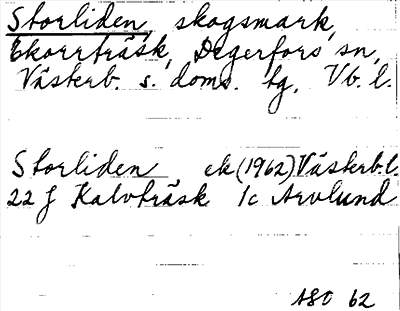 Storliden, skogsmark,
Ekorrträsk, Degerfors sn,
Västerb. s. doms. tg, Vb. l.
Storliden ek (1962) Västerb.l.
22 J Kalvträsk 1c Arvlund
ASO 62